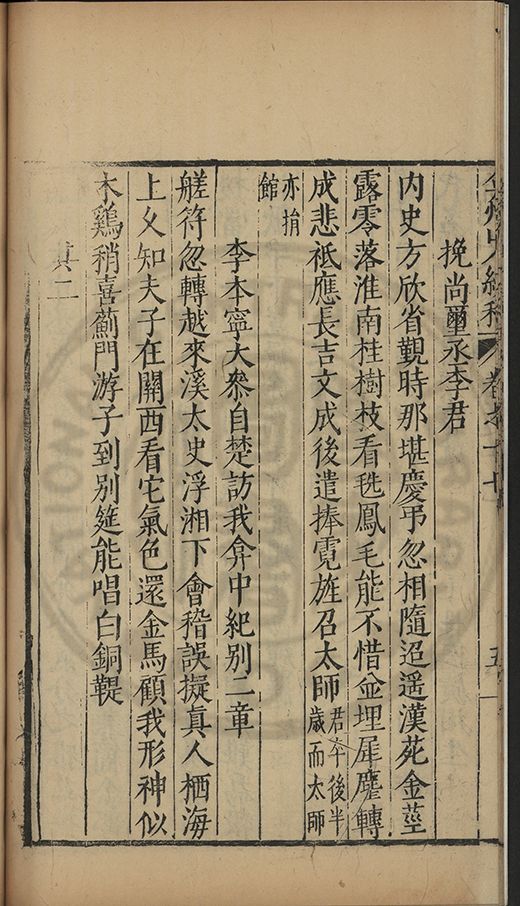 挽尚璽丞李君
内史方欣省覲時那堪慶弔忽相隨迢遥漢苑金莖
露零落淮南桂樹枝看毨鳳毛能不惜企埋犀麈轉
成悲祗應長吉文成後遣捧霓旌召太師君卒後半歲而太師
亦捐館
李本寧大叅自楚訪我弇中紀别二章
艖符忽轉越來溪太史浮湘下會稽誤擬真人栖海
上乂知夫子在關西看宅氣色還金馬顧我形神似
木鷄稍喜薊門游子到别筵能唱白銅鞮
其二
卷之十七
五